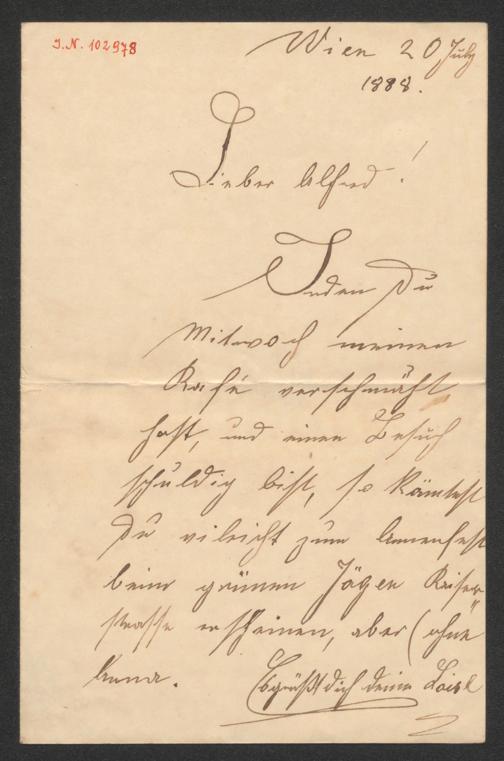 I.N. 102978
Wien 20 July
1888.
Lieber Alfred!
Indem Du
Mitwoch meinen
Kafé verschmäht
hast, und einen Besuch
schuldig bist, so kämtest
Du vileicht zum Annenfest
beim grünen Jäger Kaiser
strasse erscheinen, aber (ohne
Anna.
Es grüßt dich deine Loisl